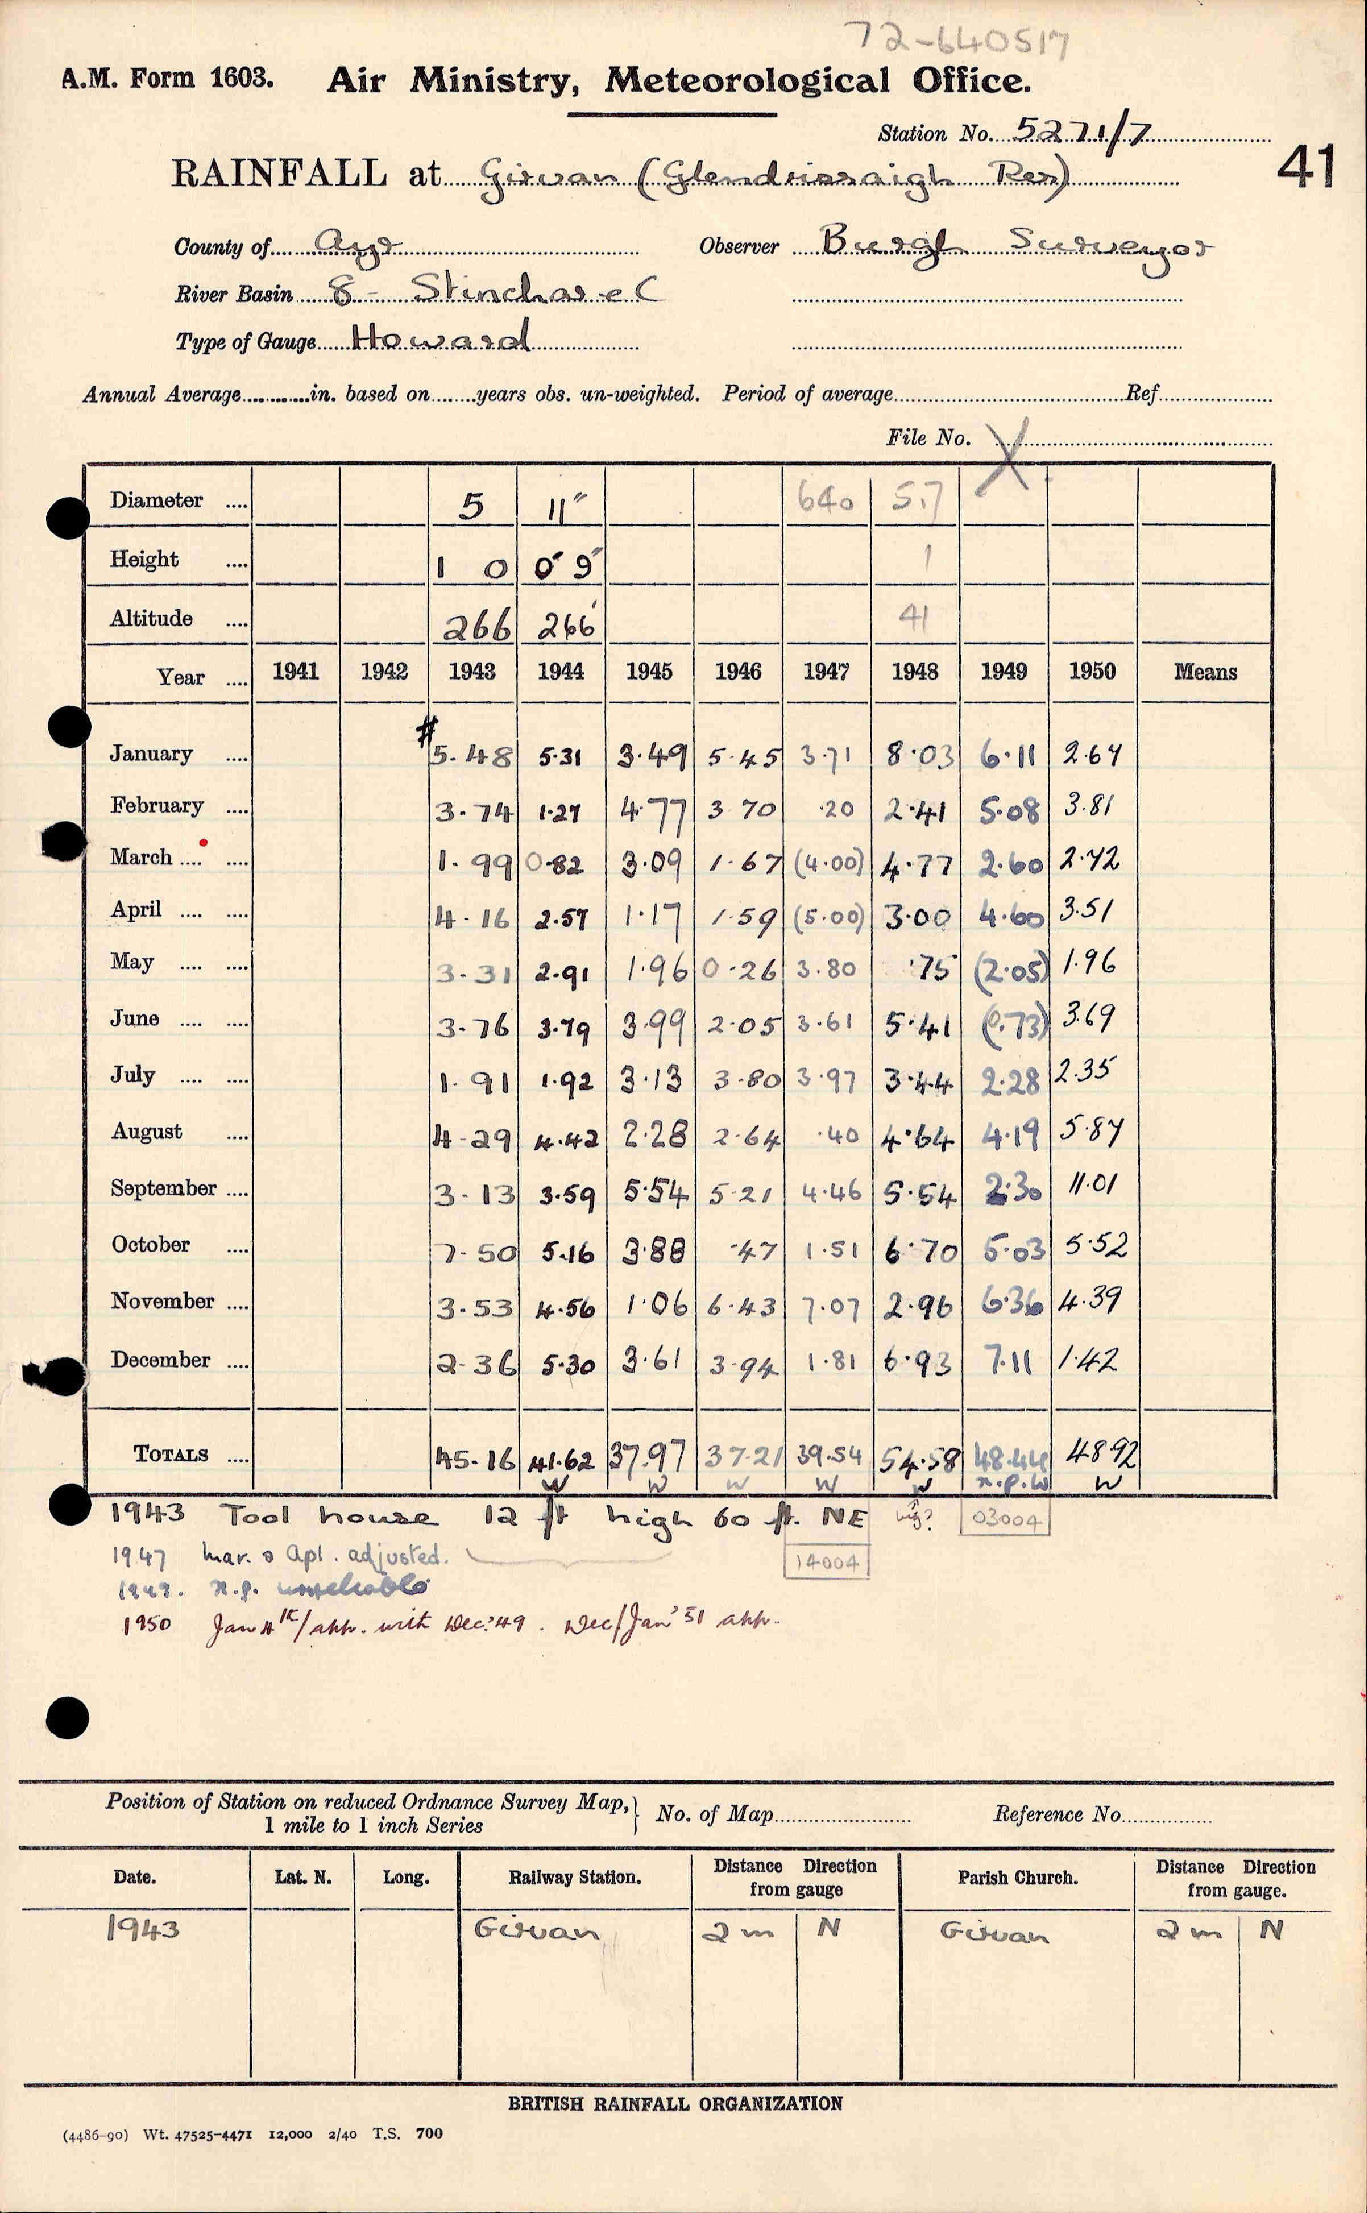 72-640517
A.M. Form 1603. Air Ministry, Meteorological Office.
Station No. 5271/7
41
RAINFALL at Girvan (Glendrissaigh Res)
County of Ayr Observer Burgh Surveyor
River Basin 8 - Stinchar e C
Type of Gauge Howard
Annual Average in. based on years obs. un-weighted. Period of average Ref.
File No. X
Diameter 5 11" 640 5.7
Height 1 0 0' 9" 1
Altitude 266 266' 41
Year 1941 1942 1943 1944 1945 1946 1947 1948 1949 1950 Means
January # 5.48 5.31 3.49 5.45 3.71 8.03 6.11 2.67
February 3.74 1.27 4.77 3.70 .20 2.41 5.08 3.81
March 1.99 0.82 3.09 1.67 (4.00) 4.77 2.60 2.72
April 4.16 2.57 1.17 1.59 (5.00) 3.00 4.60 3.51
May 3.31 2.91 1.96 0.26 3.80 .75 (2.05) 1.96
June 3.76 3.79 3.99 2.05 3.61 5.41 (0.73) 3.69
July 1.91 1.92 3.13 3.80 3.97 3.44 2.28 2.35
August 4.29 4.42 2.28 2.64 .40 4.64 4.19 5.87
September 3.13 3.59 5.54 5.21 4.46 5.54 2.30 11.01
October 7.50 5.16 3.88 .47 1.51 6.70 5.03 5.52
November 3.53 4.56 1.06 6.43 7.07 2.96 6.36 4.39
December 2.36 5.30 3.61 3.94 1.81 6.93 7.11 1.42
TOTALS 45.16 41.62 37.97 37.21 39.54 54.58 48.44 48.92
W W W W W n.p.W W
1943 Tool house 12 ft high 60 ft. NE hig? 03004
1947 Mar. & Apl. adjusted. 14004
1949. n.p. unreliable
1950 Jan 4th/app. with Dec '49. Dec/Jan '51 app.
Position of Station on reduced Ordnance Survey Map, 1 mile to 1 inch Series } No. of Map Reference No.
Date. Lat. N. Long. Railway Station. Distance Direction from gauge Parish Church. Distance Direction from gauge.
1943 Girvan 2 m N Girvan 2 m N
BRITISH RAINFALL ORGANIZATION
(4486-90) Wt. 47525-4471 12,000 2/40 T.S. 700